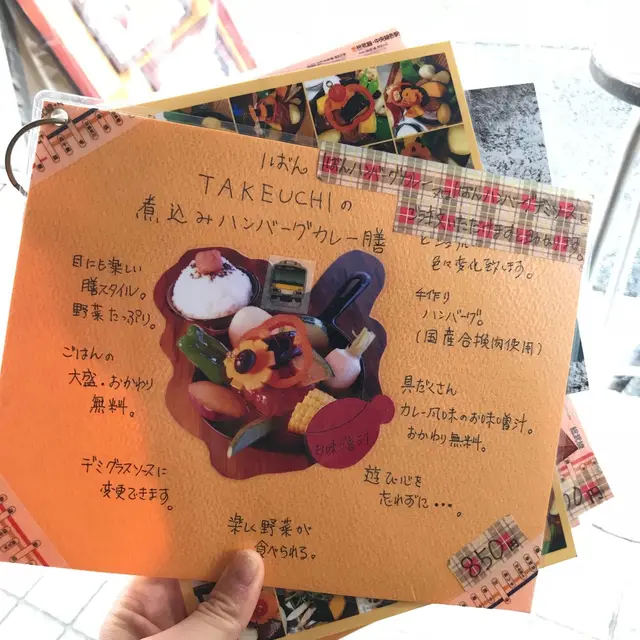 1ばん
TAKEUCHIの
煮込みハンバーグカレー膳
目にも楽しい
膳スタイル。
野菜たっぷり。
ごはんの
大盛・おかわり
無料。
デミグラスソースに
変更できます。
楽しく野菜が
食べられる。
色々変化致します。
手作り
ハンバーグ。
(国産合挽肉使用)
具だくさん
カレー風味のお味噌汁。
おかわり無料。
遊び心を
忘れずに・・・。
お味噌汁
850円